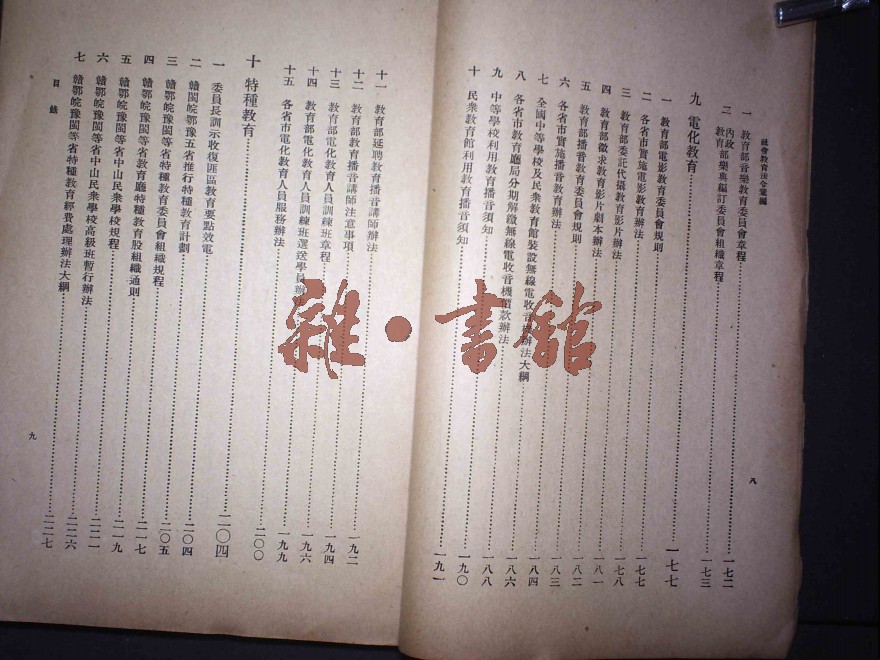 社會教育法令彙編
一 教育部音樂教育委員會章程……一七二
二 內政教育部樂典編訂委員會組織章程……一七三
九 電化教育……一七七
一 教育部電影教育委員會規則……一七七
二 各省市實施電影教育辦法……一七七
三 教育部委託代攝教育影片辦法……一七八
四 教育部徵求教育影片劇本辦法……一八一
五 教育部播音教育委員會規則……一八二
六 各省市實施播音教育辦法……一八三
七 全國中等學校及民衆教育館裝設無線電收音機辦法大綱……一八四
八 各省市教育廳局分期解繳無線電收音機價款辦法……一八六
九 中等學校利用教育播音須知……一八八
十 民衆教育館利用教育播音須知……一九〇
一九一
八
十一 教育部延聘教育播音講師辦法……一九二
十二 教育部教育播音講師注意事項……一九四
十三 教育部電化教育人員訓練班章程……一九六
十四 教育部電化教育人員訓練班選送學員辦法……一九九
十五 各省市電化教育人員服務辦法……二〇〇
十 特種教育……二〇四
一 委員長訓示收復匪區教育要點效電……二〇四
二 贛閩皖鄂豫五省推行特種教育計劃……二〇五
三 贛鄂皖豫閩等省特種教育委員會組織規程……二一七
四 贛鄂皖豫閩等省教育廳特種教育股組織通則……二一九
五 贛鄂皖豫閩等省中山民衆學校規程……二二一
六 贛鄂皖豫閩等省中山民衆學校高級班暫行辦法……二二六
七 贛鄂皖豫閩等省特種教育經費處理辦法大綱……二二七
目錄
九
雜·書館